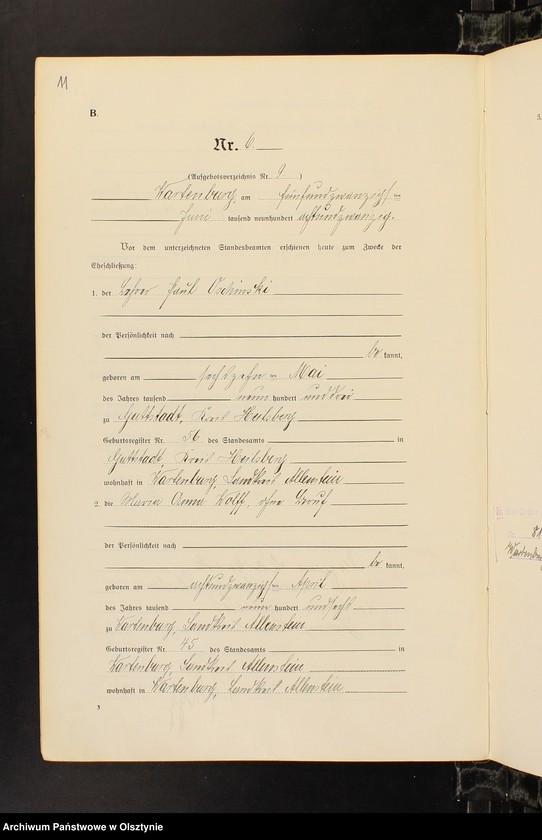 11
B.
Nr. 6.
(Aufgebotsverzeichnis Nr. 9)
Wartenburg, am fünfundzwanzigsten
Juni tausend neunhundert achtundzwanzig.
Vor dem unterzeichneten Standesbeamten erschienen heute zum Zwecke der
Eheschließung:
1. der Paul
der Persönlichkeit nach
be kannt,
geboren am sechszehnten Mai
des Jahres tausend neun hundert und drei
zu Guttstadt, Kreis Heilsberg
Geburtsregister Nr. 56 des Standesamts in
Guttstadt, Kreis Heilsberg
wohnhaft in Wartenburg, Landkreis Allenstein
2. die Maria Anna Wolff, ohne Beruf
der Persönlichkeit nach
be kannt,
geboren am achtundzwanzigsten April
des Jahres tausend neun hundert und sechs
zu Wartenburg, Landkreis Allenstein
Geburtsregister Nr. 45 des Standesamts in
Wartenburg, Landkreis Allenstein
wohnhaft in Wartenburg, Landkreis Allenstein
3
Archiwum Państwowe w Olsztynie